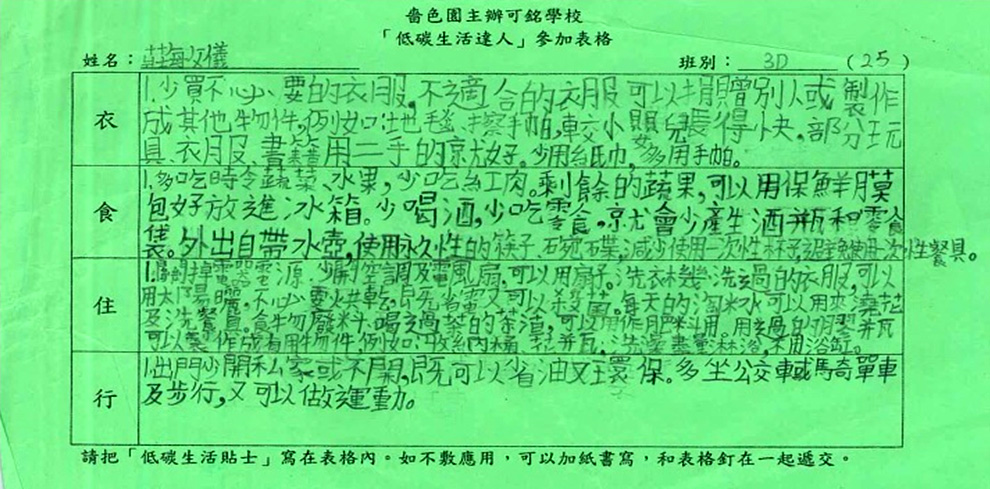 嗇色園主辦可銘學校
「低碳生活達人」參加表格
姓名：莊敏儀 班別：3D (25)
衣
1.少買不必要的衣服。不適合的衣服可以捐贈別人或製作
成其他物件,例如:地毯、擦手帕,較小頭兒長得快。部分玩
具、衣服、書籍用二手的就好。少用紙巾,多用手帕。
食
1.多吃時令蔬菜、水果,少吃紅肉。剩餘的蔬果,可以用保鮮膜
包好放進冰箱。少喝酒,少吃零食,就會少產生酒瓶和零食
袋。外出自帶水壺,使用永久性的筷子、碗、碟,減少使用一次性杯子,避免使用一次性餐具。
住
1.關掉電器電源,少開空調及電風扇,可以用扇子。洗衣機洗過的衣服,可以
用太陽曬,不必要烘乾,既省電又可以殺菌。每天的淘米水可以用來澆花
及洗餐具。食物廢料、喝過茶的茶渣,可以用作肥料用。用過的膠瓶
可以製作成有用物件,例如:收納箱、花瓶,洗澡盡量淋浴,不用浴缸。
行
1.出門少開私家或不開,既可以省油又環保。多坐公交車或騎單車
及步行,又可以做運動。
請把「低碳生活貼士」寫在表格內。如不敷應用，可以加紙書寫，和表格釘在一起遞交。